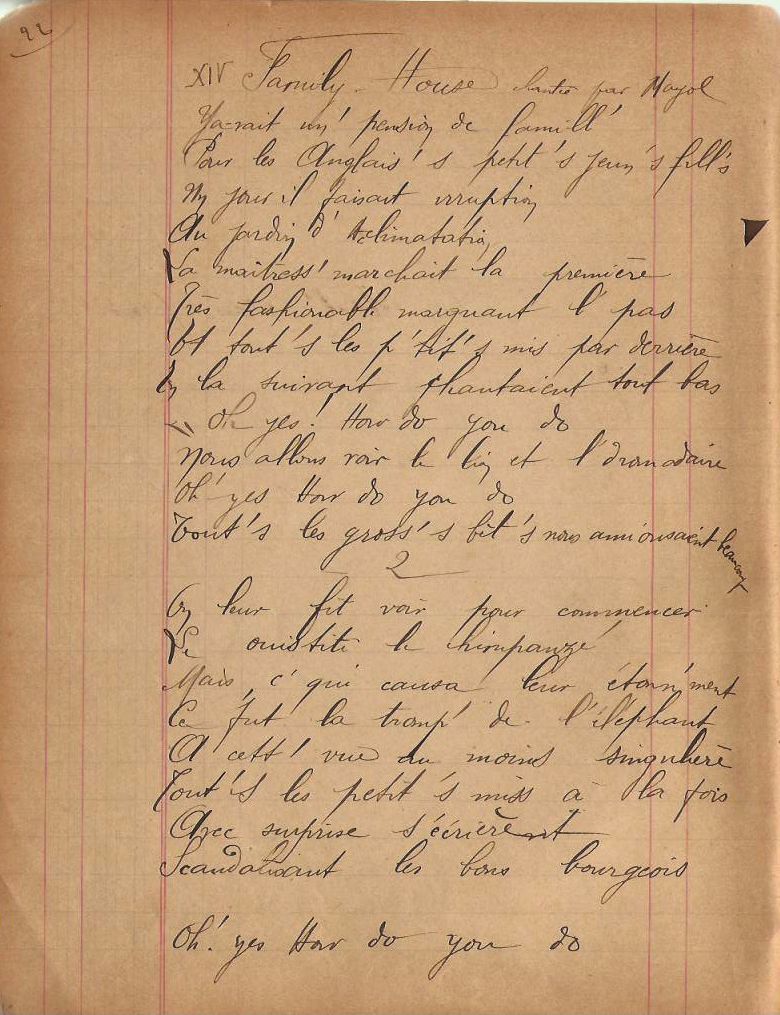 22
XIV Family-House chantée par Mayol
Y avait un' pension de famill'
Pour les Anglais's petit's jeun's fill's
Un jour il faisait irruption
Au jardin d'Acclimatation
La maîtress' marchait la première
Très fashionable marquant l' pas
Et tout's les p'tit's mis par derrière
En la suivant chantaient tout bas
" Oh yes! How do you do
Nous allons voir le lion et l'dromadaire
Oh! yes How do you do
Tout's les gross's bêt's nous amiousaient beaucoup
2
On leur fit voir pour commencer
Le ouistiti le chimpanzé
Mais c' qui causa leur étonn'ment
Ce fut la tromp' de l'éléphant
A cett' vue au moins singulière
Tout's les petit's miss à la fois
Avec surprise s'écrièrent
Scandalisant les bons bourgeois
Oh! yes How do you do